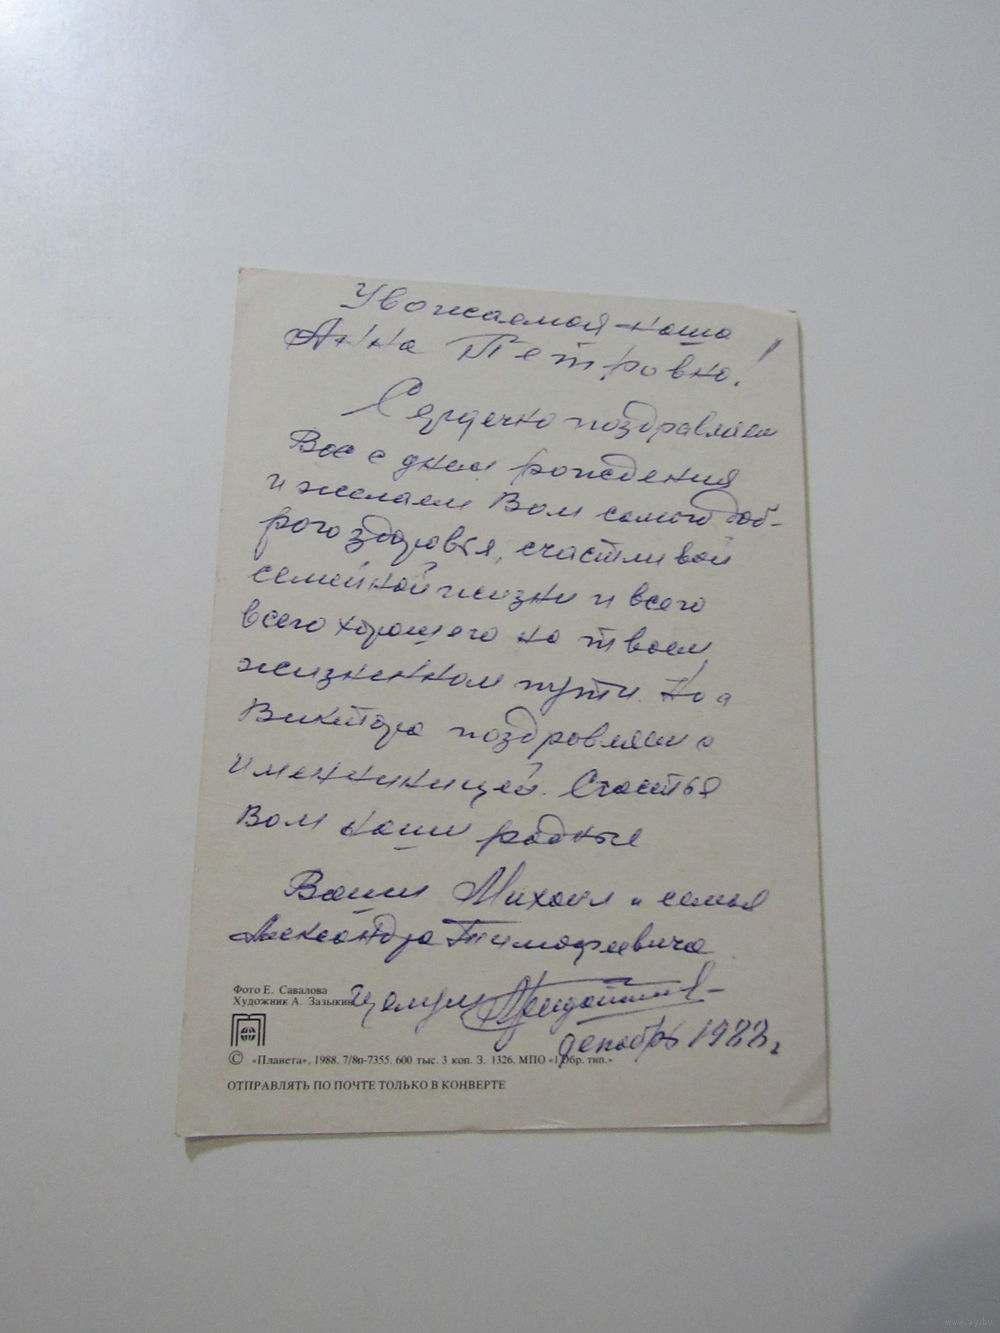 Уважаемая наша
Анна Петровна!
Сердечно поздравляем
Вас с днем рождения
и желаем Вам самого доб-
рого здоровья, счастливой
семейной жизни и всего
всего хорошего на твоем
жизненном пути. Ну а
Виктора поздравляем с
именинницей. Счастья
Вам наши родные
Ваши Михаил и семья
Александра Тимофеевича
Фото Е. Савалова
Художник А. Зазыкин
целуем
декабрь 1988 г
© «Планета», 1988. 7/8п-7355. 600 тыс. 3 коп. З. 1326. МПО «1 Обр. тип.»
ОТПРАВЛЯТЬ ПО ПОЧТЕ ТОЛЬКО В КОНВЕРТЕ
www.ay.by